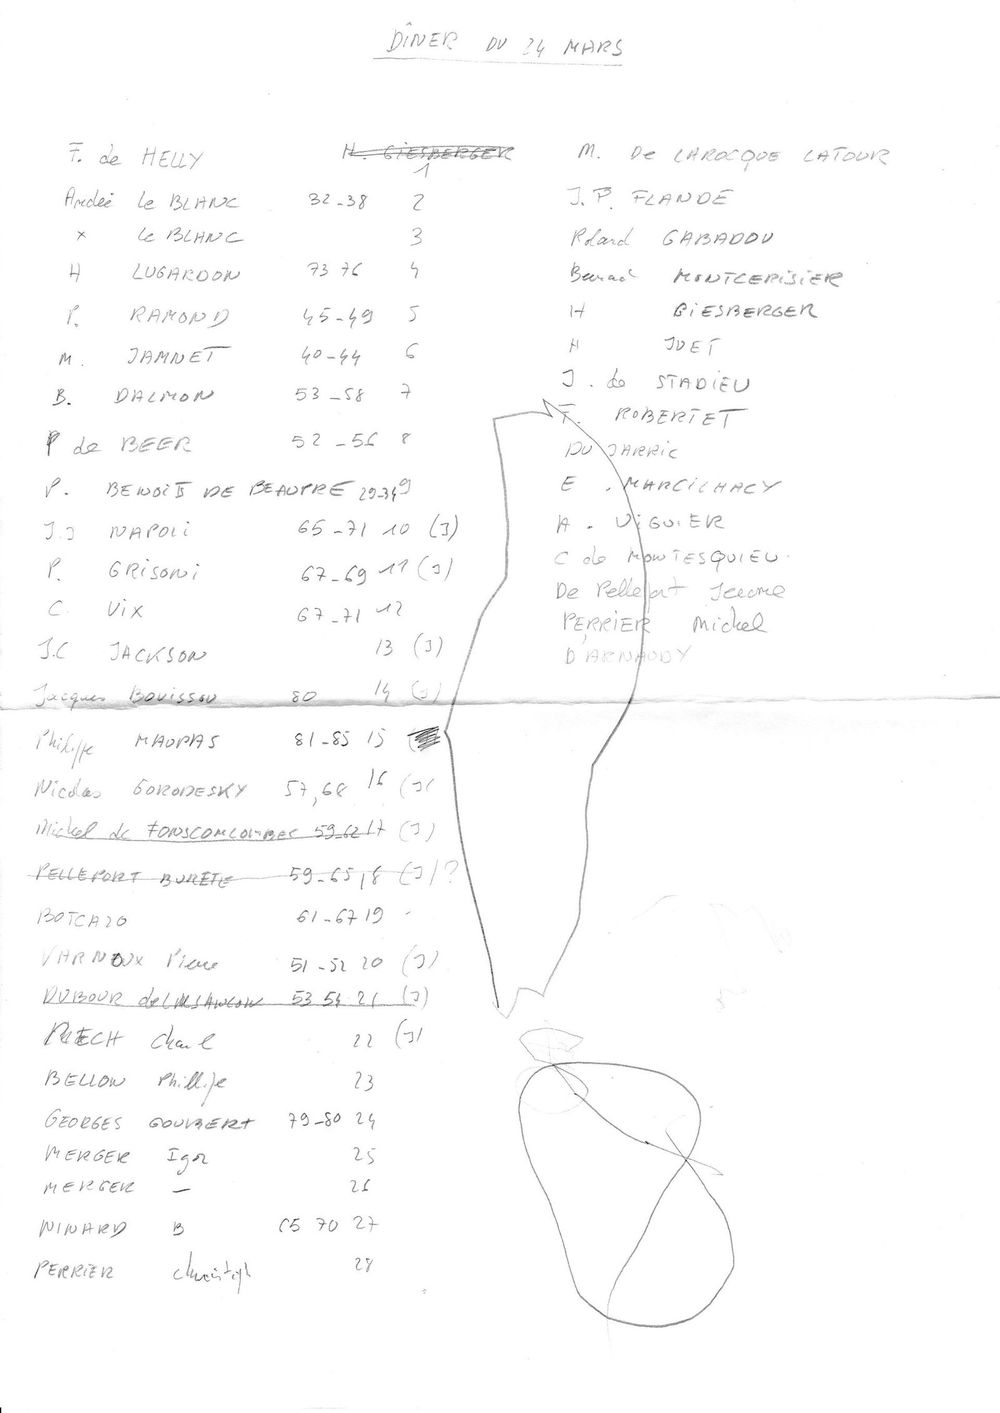 DÎNER DU 24 MARS
F. de HELLY H. GIESBERGER 1
André Le BLANC 32-38 2
x Le BLANC 3
H LUGARDON 73 76 4
P. RAMOND 45-49 5
M. JAMNET 40-44 6
B. DALMON 53-58 7
P de BEER 52-56 8
P. BENOIST DE BEAUPRE 29-34 9
J.J NAPOLI 65-71 10 (J)
P. GRISONI 67-69 11 (J)
C. VIX 67-71 12
J.C JACKSON 13 (J)
Jacques BOUISSOU 80 14 (J)
Philippe MAUPAS 81-85 15
Nicolas GORODESKY 57,68 16 (J)
Michel de FONSCOLOMBES 59-62 17 (J)
PELLEPORT BURETE 59-65 18 (J)?
BOTCAZO 61-67 19
VARNOUX Pierre 51-52 20 (J)
DUBOUR de 53 54 21 (J)
22 (J)
BELLON Phillipe 23
GEORGES GOUBERT 79-80 24
MERGER Igor 25
MERGER — 26
NINARD B 65 70 27
PERRIER Christoph 28
M. De LAROCQUE LATOUR
J.P. FLANDE
Roland GABADOU
Bernard MONTCERISIER
H GIESBERGER
H JUET
J. de STADIEU
F. ROBERTET
DU JARRIC
E. MARCILHACY
A. VIGUIER
C de MONTESQUIEU
De Pelleport Jerome
PERRIER Michel
D'ARNAUDY